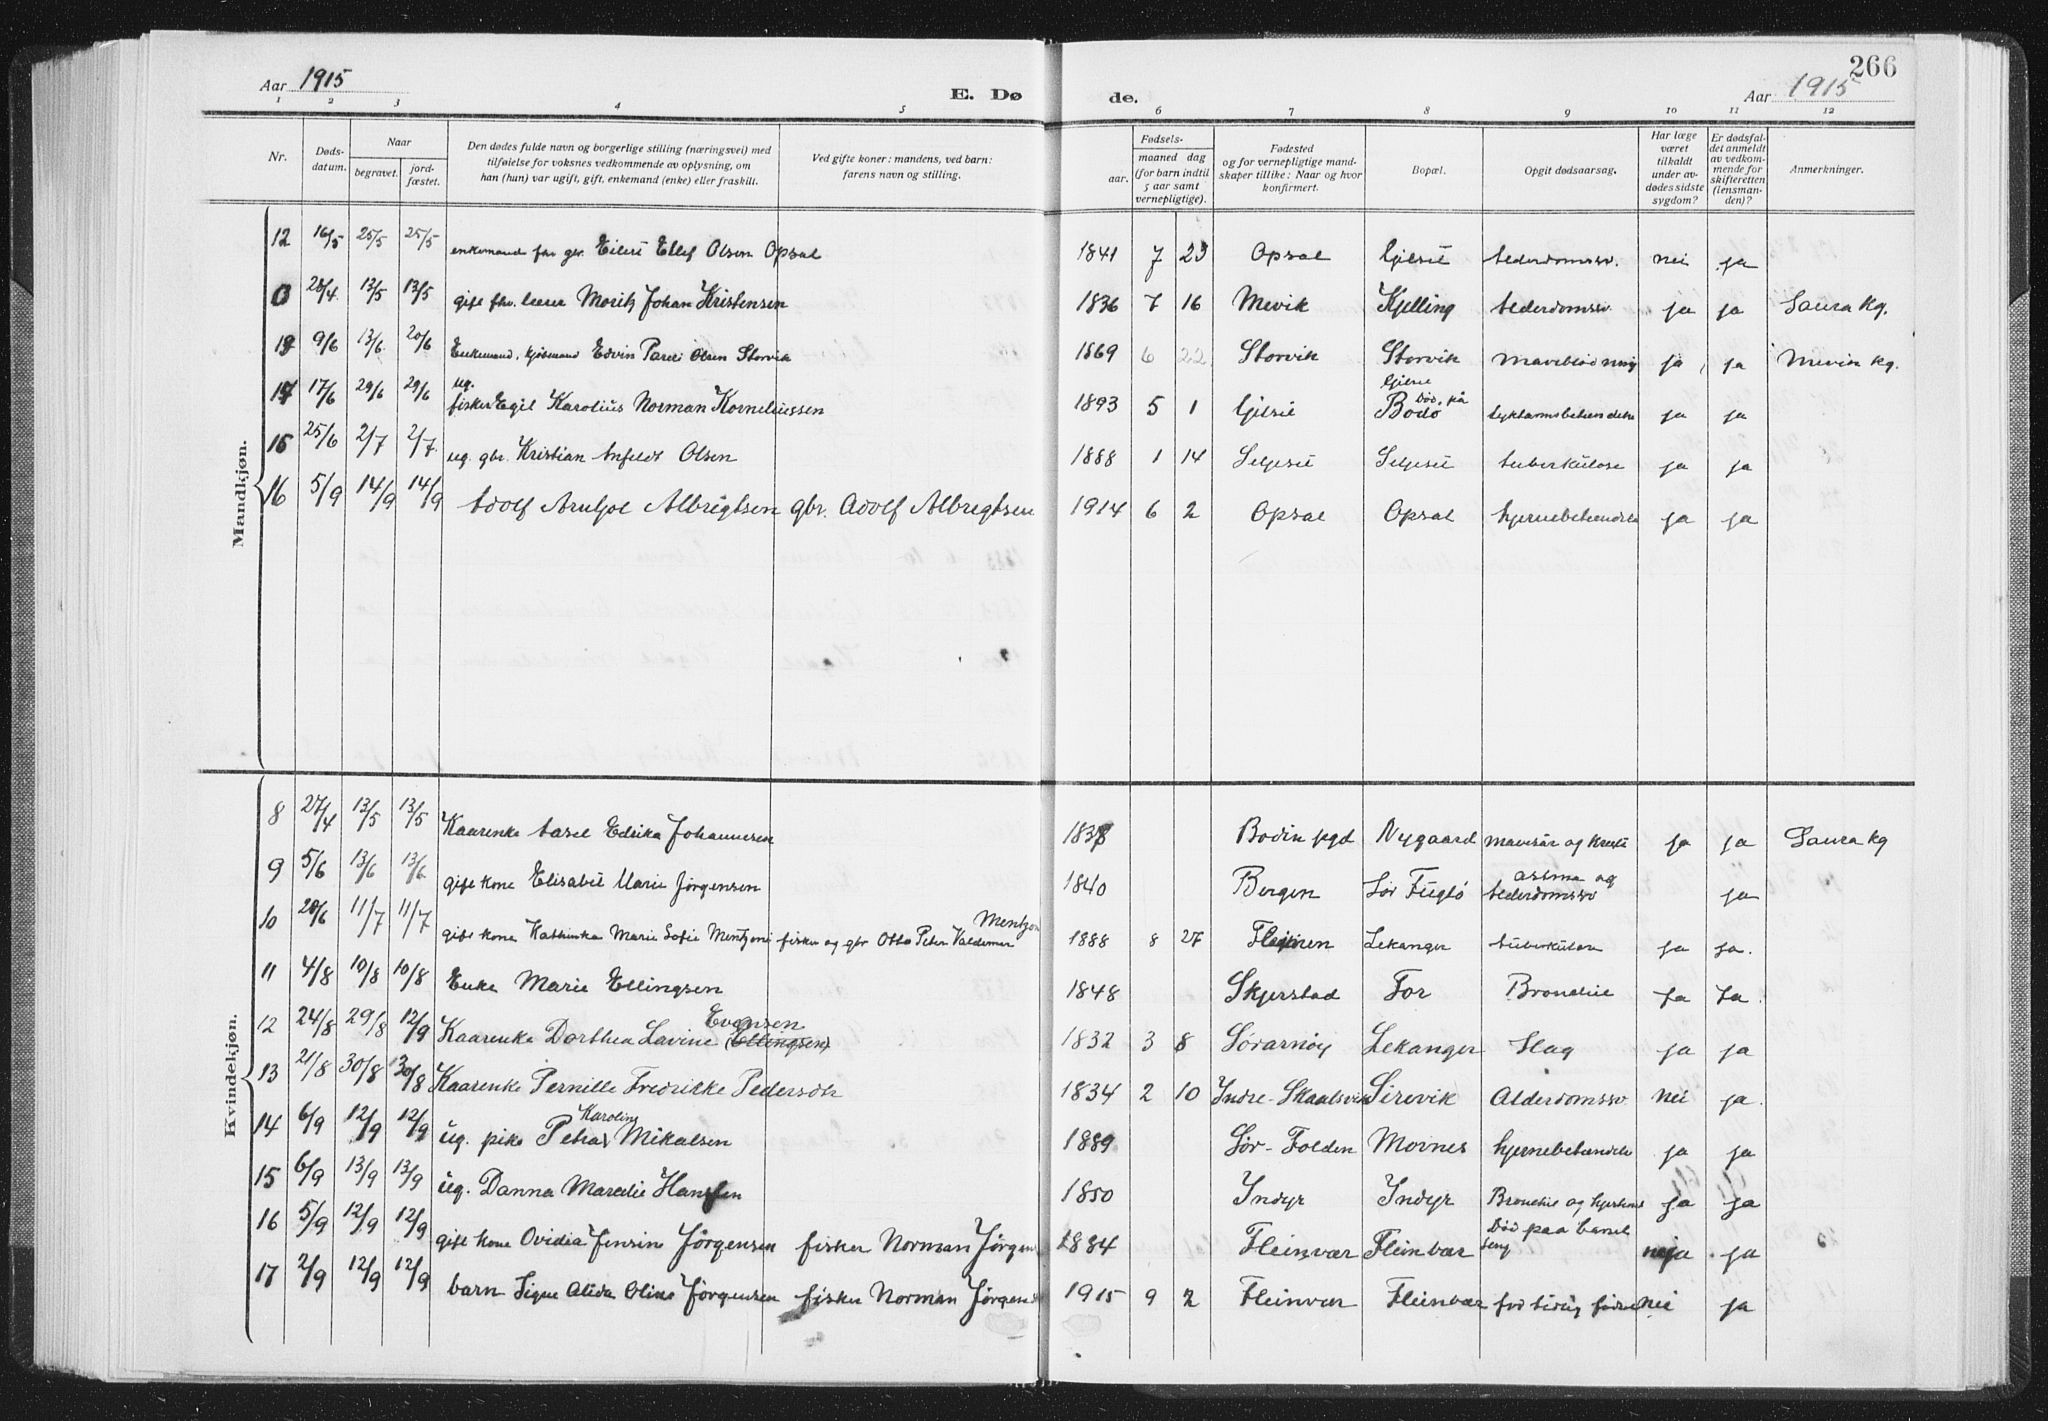 Aar 1915
E. Døde.
Aar 1915
266
1 2 3 4 5 6 7 8 9 10 11 12
Nr.
Døds-
datum.
Naar
begravet.
jord-
fæstet.
Den dødes fulde navn og borgerlige stilling (næringsvei) med
tilføielse for voksnes vedkommende av oplysning, om
han (hun) var ugift, gift, enkemand (enke) eller fraskilt.
Ved gifte koner: mandens, ved barn:
farens navn og stilling.
Fødsels-
aar. maaned dag
(for barn indtil
5 aar samt
vernepligtige).
Fødested
og for vernepligtige mand-
skaper tillike: Naar og hvor
konfirmert.
Bopæl.
Opgit dødsaarsag.
Har læge
været
tilkaldt
under av-
dødes sidste
sygdom?
Er dødsfal-
det anmeldt
av vedkom-
mende for
skifteretten
(lensman-
den)?
Anmerkninger.
Mandkjøn.
12 16/5 25/5 25/5 enkemand fhv gbr. Eilert Ellef Olsen Opsal 1841 7 23 Opsal Gilset alderdomssv. nei ja
28/4 13/5 13/5 gift fhv. lærer Moritz Johan Kristensen 1836 7 16 Mevik Kjelling alderdomssv. ja ja Saura kg.
9/6 13/6 20/6 Enkemand, kjøbmand Edvin Pareli Olsen Storvik 1869 6 22 Storvik Storvik Maveblødning ja ja Mevik kg.
17/6 29/6 29/6 ug. fisker Egil Karolius Norman Korneliussen 1893 5 1 Gilset Gilset Død på Bodø ja ja
15 25/6 2/7 2/7 ug. gbr. Kristian Anfeldt Olsen 1888 1 14 Selsest Selsest tuberkulose ja ja
16 5/9 14/9 14/9 Adolf Arnljot Albrigtsen gbr. Adolf Albregtsen 1914 6 2 Opsal Opsal hjernebetændelse ja ja
Kvindekjøn.
8 27/4 13/5 13/5 Kaarenke Edrika Johannesen 1838 Bodin pgd Nygaard mavesår og kreft ja ja Saura kg
9 5/6 13/6 13/6 gift kone Elisabet Marie Jörgensen 1840 Bergen Sør Fuglø astma og alderdomssv ja
10 20/6 11/7 11/7 gift kone Kathinka Marie Sofie Mentzoni fisker og gbr Otto Peter Valdemar Mentzon 1888 8 27 Lekanger tuberkulose ja ja.
11 4/8 10/8 10/8 Enke Marie Ellingsen 1848 Skjerstad For Bronchit ja Ja
12 24/8 29/8 12/9 Kaarenke Dorthea Lavine (Ellingsen) Evensen 1832 3 8 Sørarnøy Lekanger Slag ja ja
13 21/8 30/8 30/8 Kaarenke Pernille Fredrikke Pedersdtr 1834 2 10 Indre-Skaalsvik Sirevik Alderdomssv nei ja
14 6/9 12/9 12/9 ug. pike Petra Karoline Mikalsen 1889 Sør-Folden Moines hjernebetændelse ja ja
15 6/9 13/9 13/9 ug. Danna Marelie Hansen 1850 Indyr Indyr Bronchit og ja ja
16 5/9 12/9 12/9 gift kone Ovidia Jensine Jörgensen fisker Norman Jörgen 1884 Fleinvær Fleinvær Död paa barsel seng ja ja
17 2/9 12/9 12/9 barn Signe Alida Oline Jörgensen fisker Norman Jörgensen 1915 9 2 Fleinvær Fleinvær for tidlig født nei ja